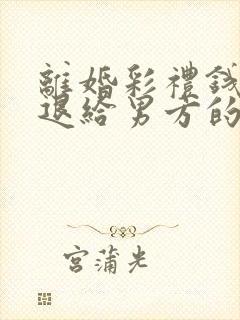 離婚彩禮錢
退給男方的
宮蒲光